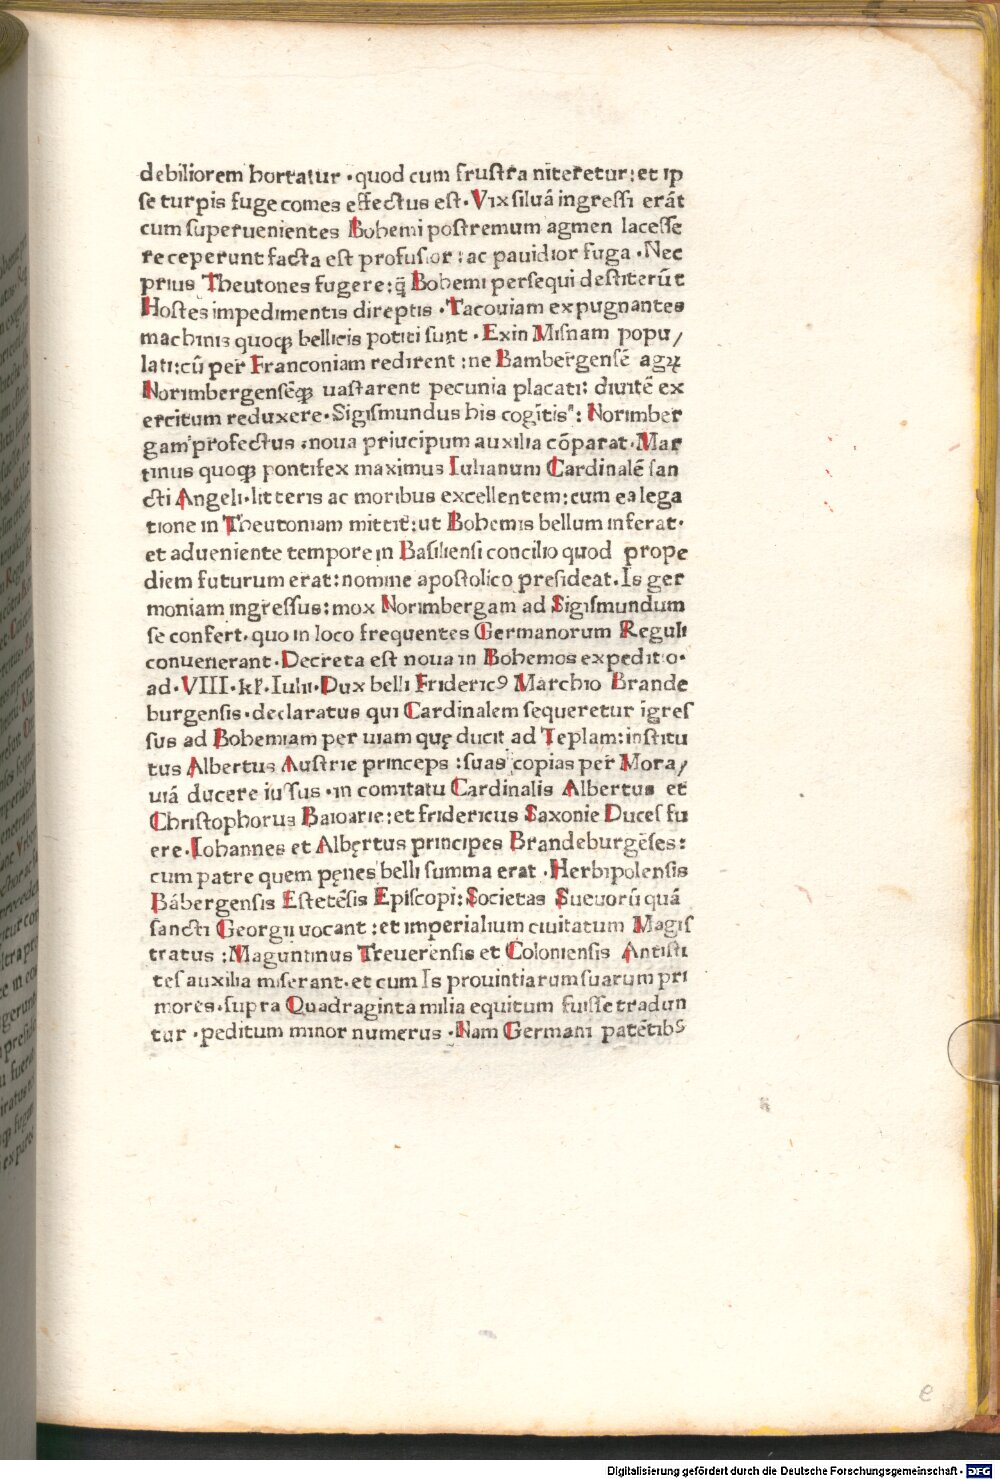 debiliorem hortatur · quod cum frustra niteretur: et ip
se turpis fuge comes effectus est · Vix siluā ingressi erāt
cum superuenientes Bohemi postremum agmen lacesse
re ceperunt facta est profusior : ac pauidior fuga · Nec
prius Theutones fugere: q̄ Bohemi persequi destiterūt
Hostes impedimentis direptis · Tacouiam expugnantes
machinis quoqꝫ bellicis potiti sunt · Exin Misnam popu/
lati: cū per Franconiam redirent : ne Bambergensē agꝝ
Norimbergensēqꝫ uastarent pecunia placati: diuitē ex
ercitum reduxere · Sigismundus his cogītis: Norimber
gam profectus · noua priucipum auxilia cōparat · Mar
tinus quoqꝫ pontifex maximus Iulianum Cardinalē san
cti Angeli · litteris ac moribus excellentem: cum ea lega
tione in Theutoniam mittit: ut Bohemis bellum inferat ·
et adueniente tempore in Basiliensi concilio quod prope
diem futurum erat: nomine apostolico presideat · Is ger
moniam ingressus: mox Norimbergam ad Sigismundum
se confert · quo in loco frequentes Germanorum Reguli
conuenerant · Decreta est noua in Bohemos expeditio ·
ad · VIII · kl̄ · Iulii · Dux belli Fridericꝰ Marchio Brande
burgensis · declaratus qui Cardinalem sequeretur īgres
sus ad Bohemiam per uiam quę ducit ad Teplam: institu
tus Albertus Austrie princeps : suas copias per Mora/
uiā ducere iussus · in comitatu Cardinalis Albertus et
Christophorus Baioarie: et fridericus Saxonie Duces fu
ere · Iohannes et Albęrtus principes Brandeburgēses:
cum patre quem pęnes belli summa erat · Herbipolensis
Bābergensis Estetēsis Episcopi: Societas Sueuorū quā
sancti Georgii uocant : et imperialium ciuitatum Magis
tratus : Maguntinus Treuerensis et Coloniensis Antisti
tes auxilia miserant · et cum Is prouintiarum suarum pri
mores · supra Quadraginta milia equitum fuisse tradun
tur · peditum minor numerus · Nam Germani patētibꝰ
e
Digitalisierung gefördert durch die Deutsche Forschungsgemeinschaft - DFG